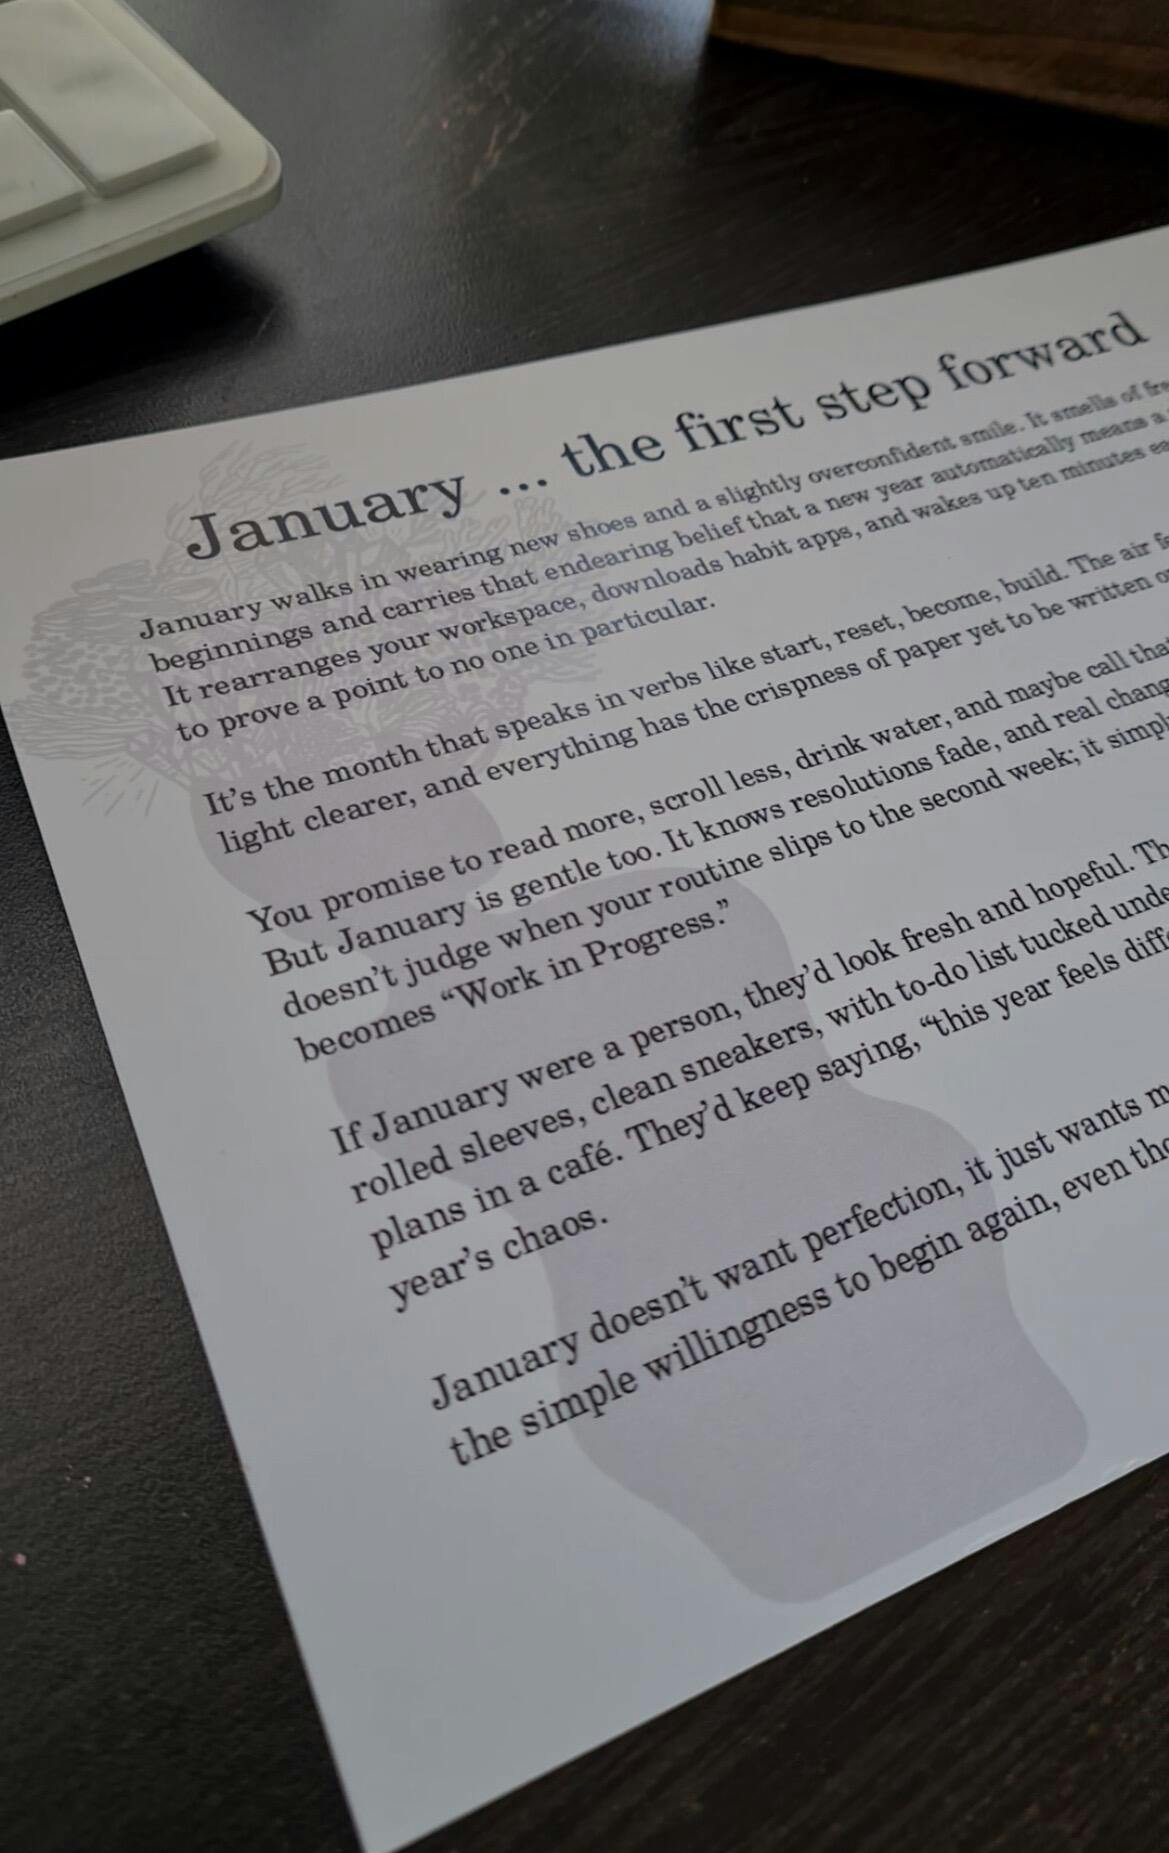 January ... the first step forward
January walks in wearing new shoes and a slightly overconfident smile. It smells of
beginnings and carries that endearing belief that a new year automatically means a
It rearranges your workspace, downloads habit apps, and wakes up ten minutes
to prove a point to no one in particular.
It’s the month that speaks in verbs like start, reset, become, build. The air
light clearer, and everything has the crispness of paper yet to be written
You promise to read more, scroll less, drink water, and maybe call
But January is gentle too. It knows resolutions fade, and real
doesn’t judge when your routine slips to the second week; it
becomes “Work in Progress.”
If January were a person, they’d look fresh and hopeful.
rolled sleeves, clean sneakers, with to-do list tucked
plans in a café. They’d keep saying, “this year feels
year’s chaos.
January doesn’t want perfection, it just wants
the simple willingness to begin again, even